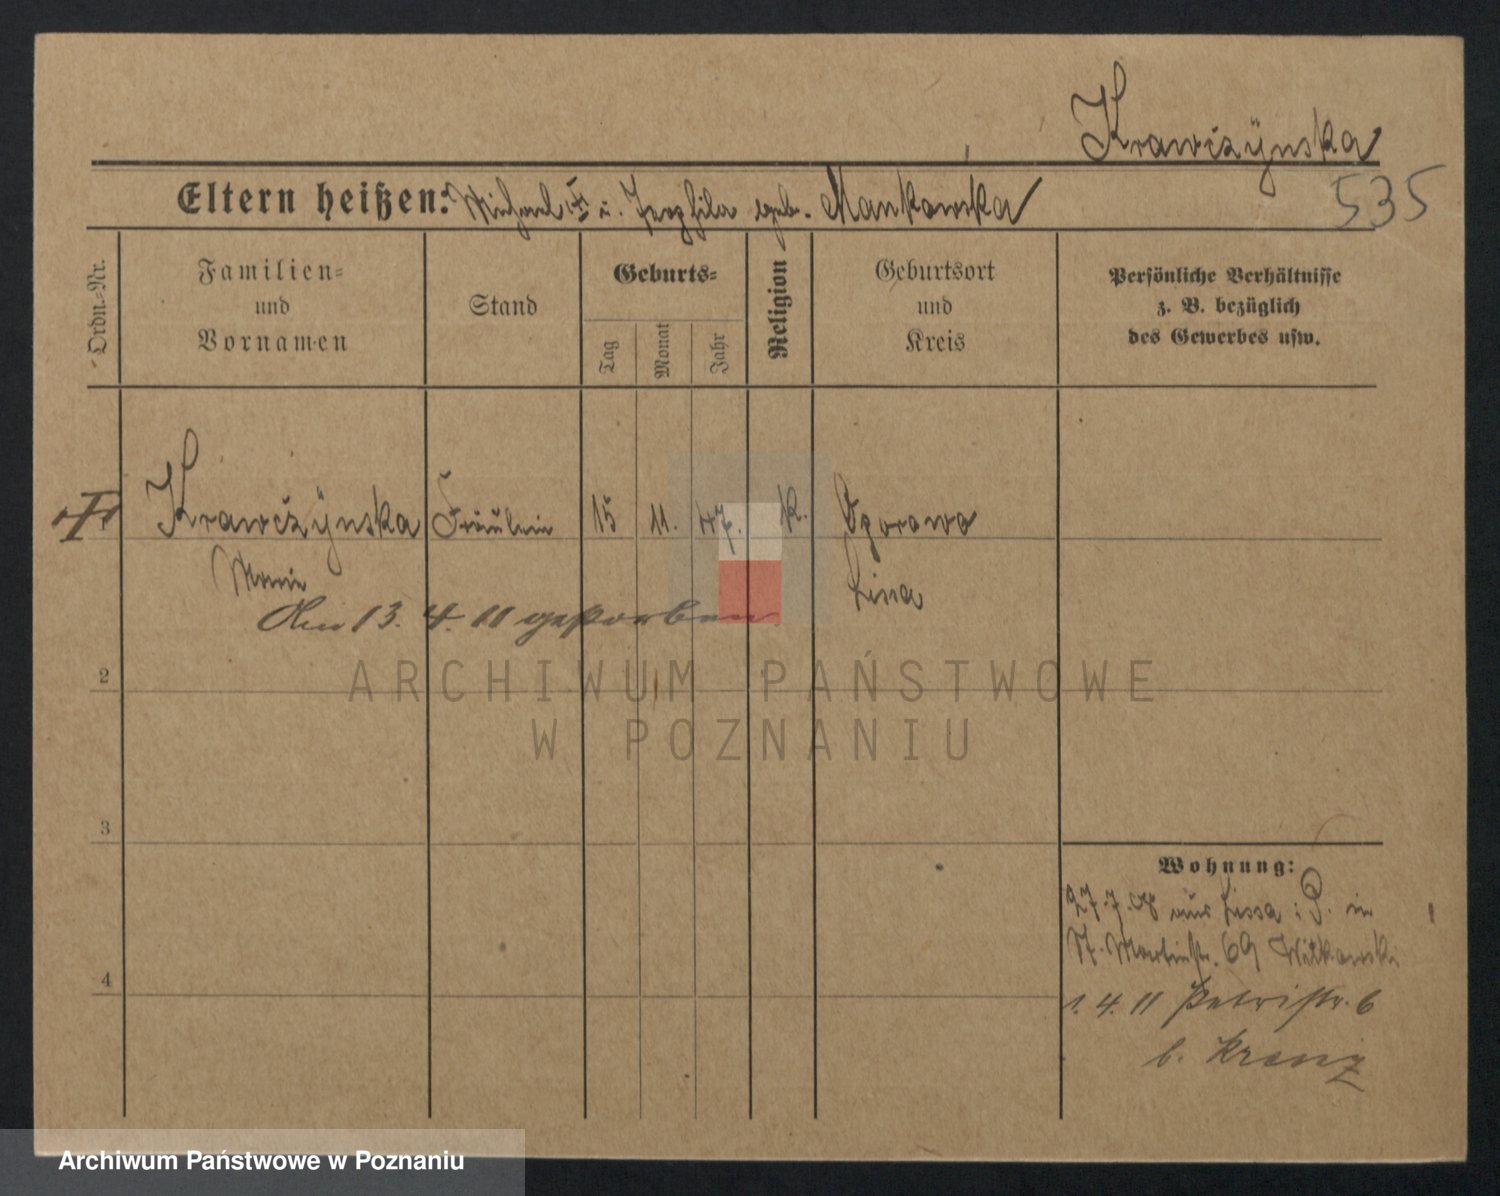 Krawczÿnska
535
Eltern heißen: Michael u. Teophila geb. Mankowska
Ordn.-Nr.
Familien-
und
Vornamen
Stand
Geburts-
Tag
Monat
Jahr
Religion
Geburtsort
und
Kreis
Persönliche Verhältnisse
z. B. bezüglich
des Gewerbes usw.
Krawčzÿnska Fräulein 15 11. 47. K.
Marie Lissa
Am 13. 4. 11 gestorben.
2
3
4
Wohnung:
27.7.08 aus Lissa i. P. in
St. Martinstr. 69 Witkowski
1. 4. 11 Petristr. 6
b. Krenz
ARCHIWUM PAŃSTWOWE
W POZNANIU
Archiwum Państwowe w Poznaniu